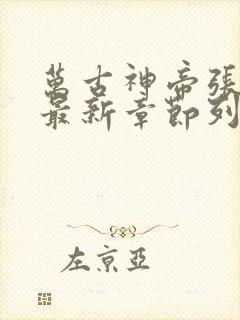 萬古神帝張
最新章節列
左京亞